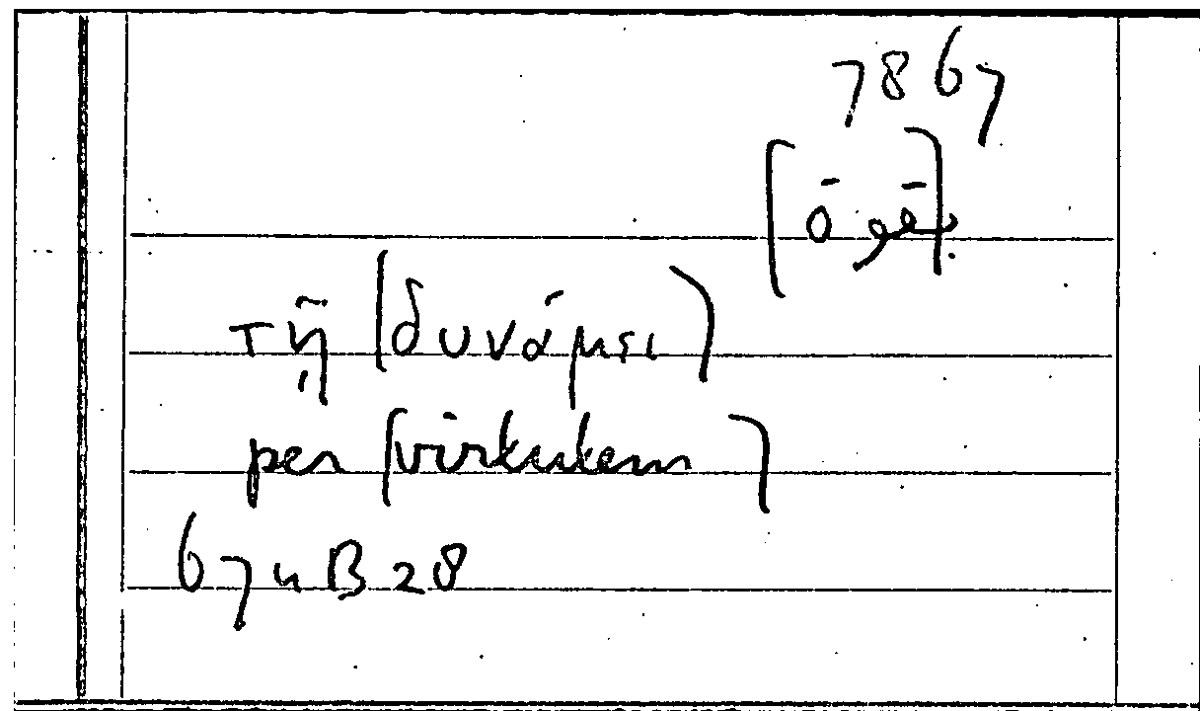 7867
τῇ (δυνάμει)
per (virtutem)
674B28